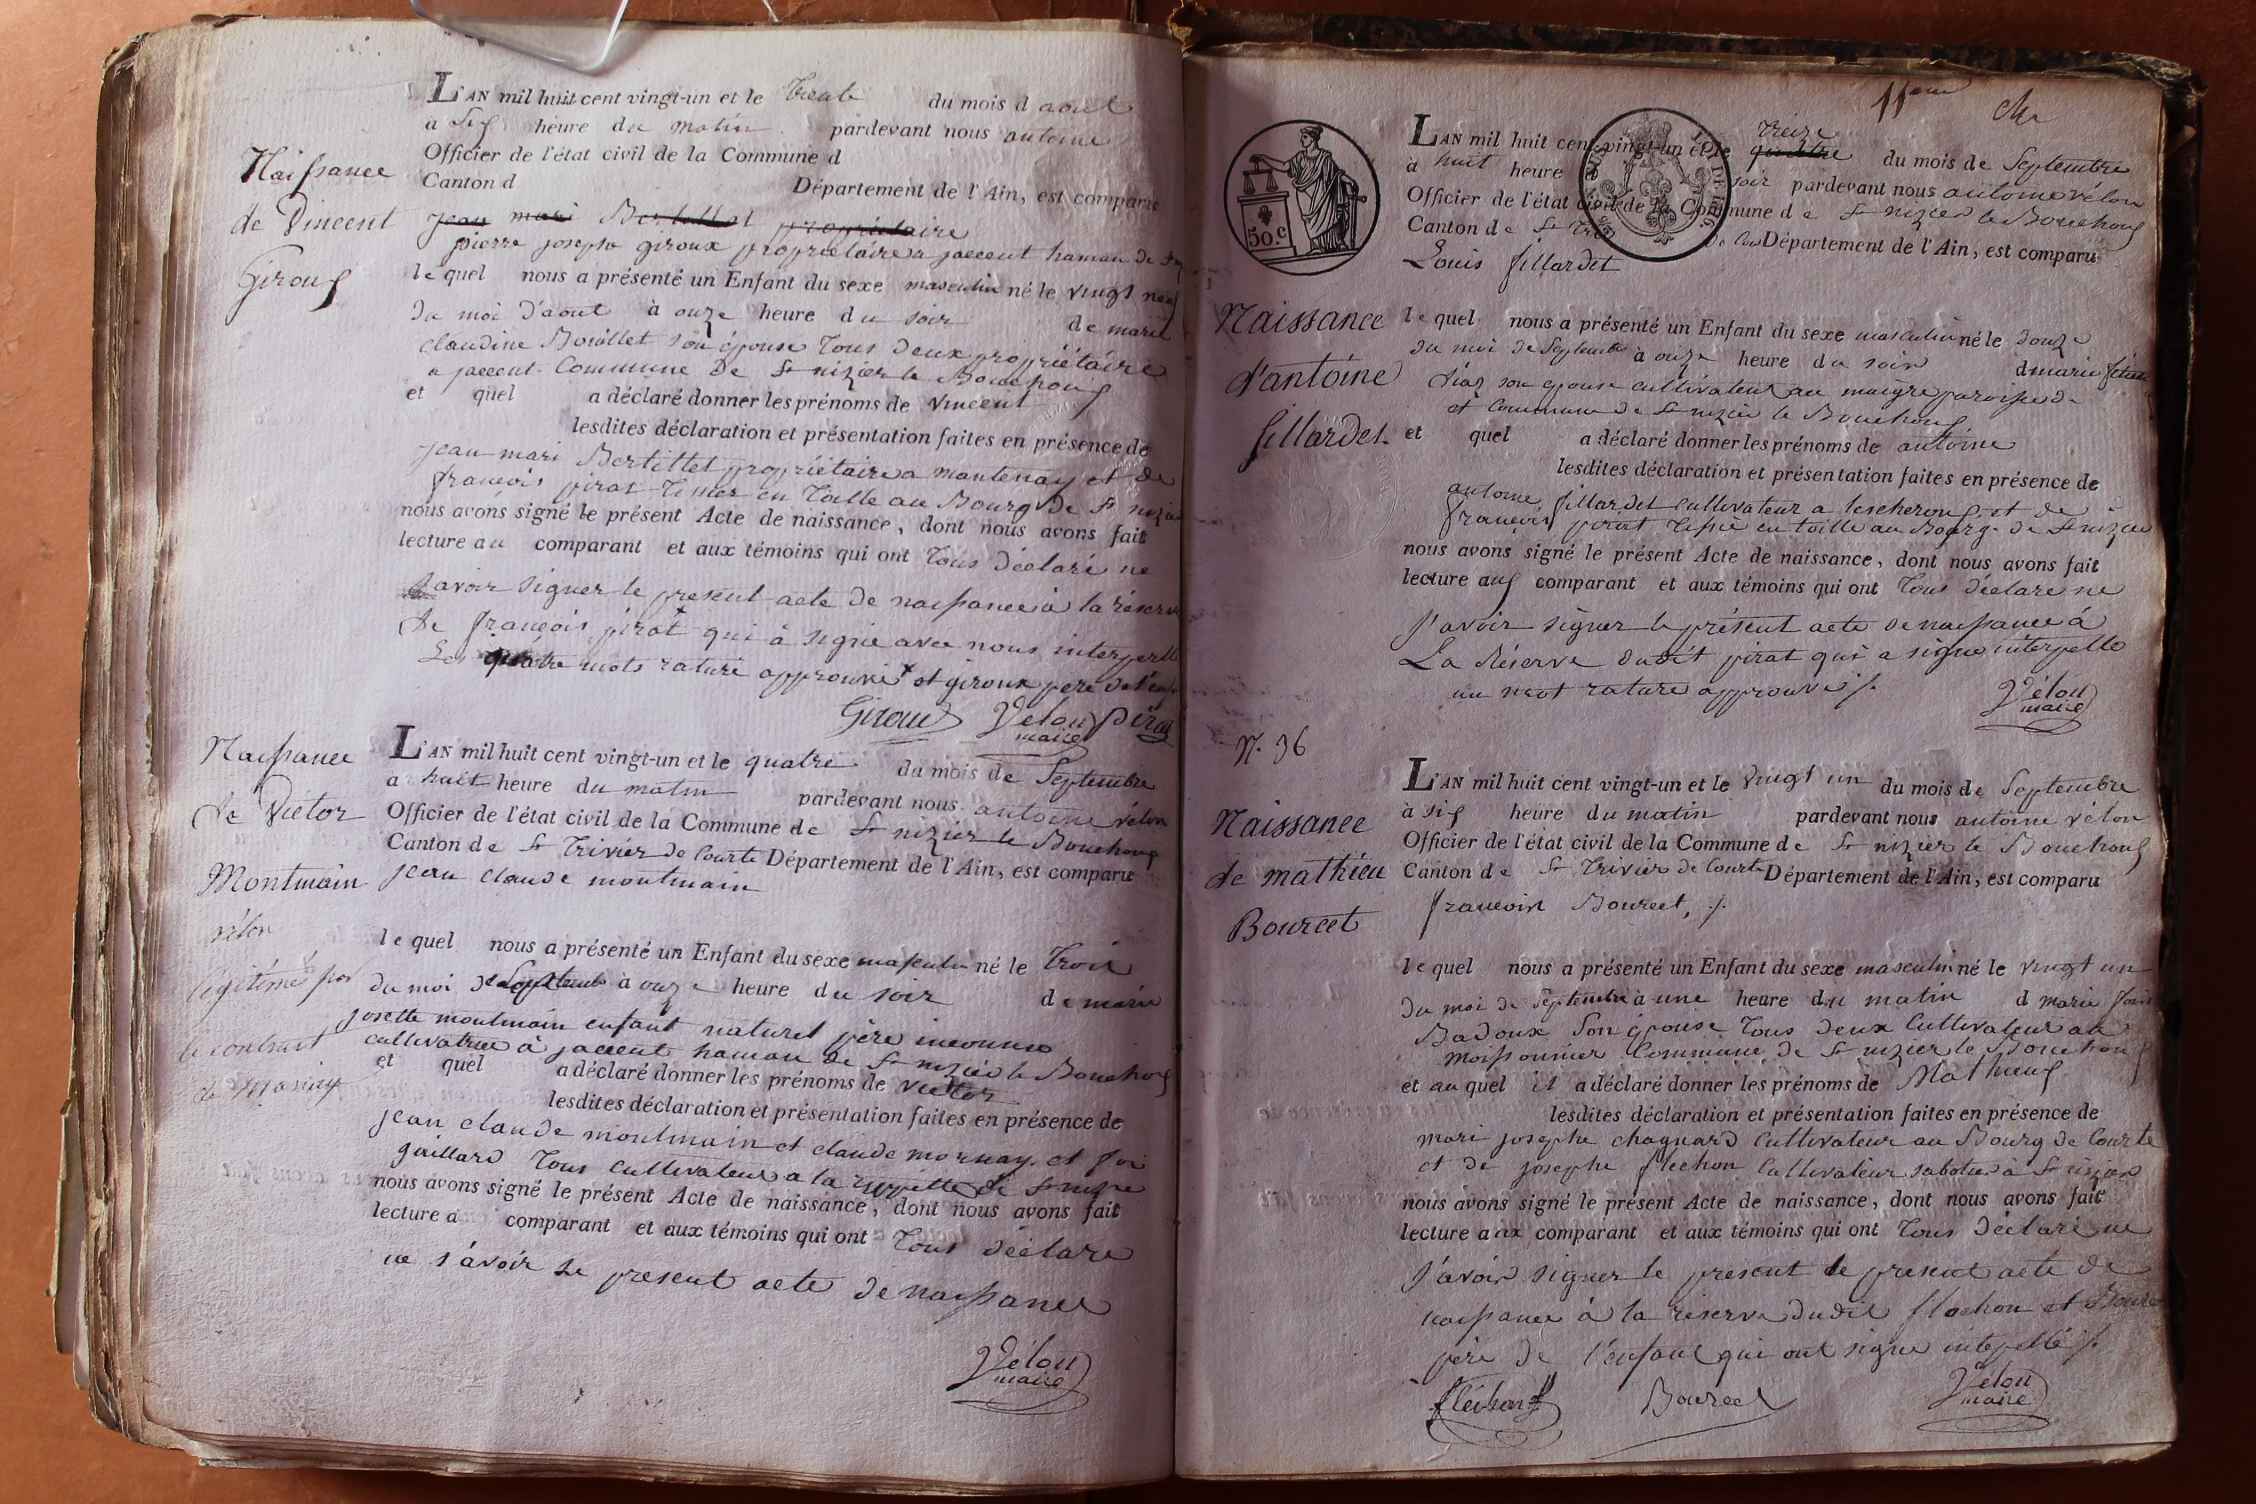 L'AN mil huit cent vingt-un et le Trente du mois d aout
a Six heure du matin pardevant nous antoine
Officier de l'état civil de la Commune d
Canton d Département de l'Ain, est comparu
Naissance
de Vincent
Giroux
jean mari Bertillet propriétaire
pierre joseph giroux propriétaire a jaccent hamau de St
le quel nous a présenté un Enfant du sexe masculin né le vingt neuf
du moi d'aout à onze heure du soir de marie
claudine Boiollet son épouse Tous deux propriétaire
a jaccent Commune de St nizier le Bouchoux
et quel a déclaré donner les prénoms de vincent
lesdites déclaration et présentation faites en présence de
jean mari Bertillet propriétaire a mantenay et de
françois pirat Tissier en Toille au Bourg de St nizier
nous avons signé le présent Acte de naissance, dont nous avons fait
lecture au comparant et aux témoins qui ont Tous déclaré ne
savoir signer le present acte de naissance à la réserve
de françois pirat qui à signé avec nous interpellé
Les quatre mots raturé approuvé et giroux pere de l'enf
Giroux Vélon Pirat
maire
Naissance
de Victor
Montmain
vélon
légitimé par
le contrat
de Mariage
L'AN mil huit cent vingt-un et le quatre du mois de Septembre
a huit heure du matin pardevant nous antoine vélon
Officier de l'état civil de la Commune de St nizier le Bouchoux
Canton de St Trivier de Courte Département de l'Ain, est comparu
jean claude montmain
le quel nous a présenté un Enfant du sexe masculin né le Trois
du moi de Septembre à onze heure du soir de marie
josette montmain enfant naturel père inconnu
cultivatrice à jaccent hamau de St nizier le Bouchoux
et quel a déclaré donner les prénoms de victor
lesdites déclaration et présentation faites en présence de
jean claude montmain et claude mornay et joi
gaillard Tous cultivateur a la de St nizie
nous avons signé le présent Acte de naissance, dont nous avons fait
lecture a comparant et aux témoins qui ont Tous déclaré
ne s'avoir le present acte de naissance
Vélon
maire
11eme
50.c
L'AN mil huit cent vingt-un et le quatre treize du mois de Septembre
à huit heure soir pardevant nous antoine vélon
Officier de l'état civil de la Commune de St nizier le Bouchoux
Canton de St Département de l'Ain, est comparu
Louis fillardet
Naissance
d'antoine
fillardet
le quel nous a présenté un Enfant du sexe masculin né le douze
du moi de Septembre à onze heure du soir d marie
son epouse cultivateur au maigre paroisse de
et commune de St nizier le Bouchoux
et quel a déclaré donner les prénoms de antoine
lesdites déclaration et présentation faites en présence de
antoine fillardet cultivateur a lescheroux et de
françois pirat Tissié en toille au Bourg de St nizier
nous avons signé le présent Acte de naissance, dont nous avons fait
lecture aux comparant et aux témoins qui ont Tous déclaré ne
s'avoir signer le présent acte de naissance à
La Réserve dudit pirat qui a signé interpellé
un mot raturé approuvé
Vélon
maire
N. 36
Naissance
de mathieu
Bourcet
L'AN mil huit cent vingt-un et le vingt un du mois de Septembre
à six heure du matin pardevant nous antoine vélon
Officier de l'état civil de la Commune de St nizier le Bouchoux
Canton de St Trivier de Courte Département de l'Ain, est comparu
françois Bourcet
le quel nous a présenté un Enfant du sexe masculin né le vingt un
du moi de Septembre à une heure du matin d marie
Badoux Son épouse Tous deux Cultivateur au
moissonnier Commune de St nizier le Bouchoux
et au quel il a déclaré donner les prénoms de Mathieux
lesdites déclaration et présentation faites en présence de
mari josephe chagnard Cultivateur au Bourg de Courte
et de josephe flechon Cultivateur sabotier à St nizier
nous avons signé le présent Acte de naissance, dont nous avons fait
lecture aux comparant et aux témoins qui ont Tous déclaré ne
s'avoir signer le present le present acte de
naissance à la réserve dudit flechon et Bource
père de l'enfant qui ont signé intepellé
fléchon Bourcet Vélon
maire